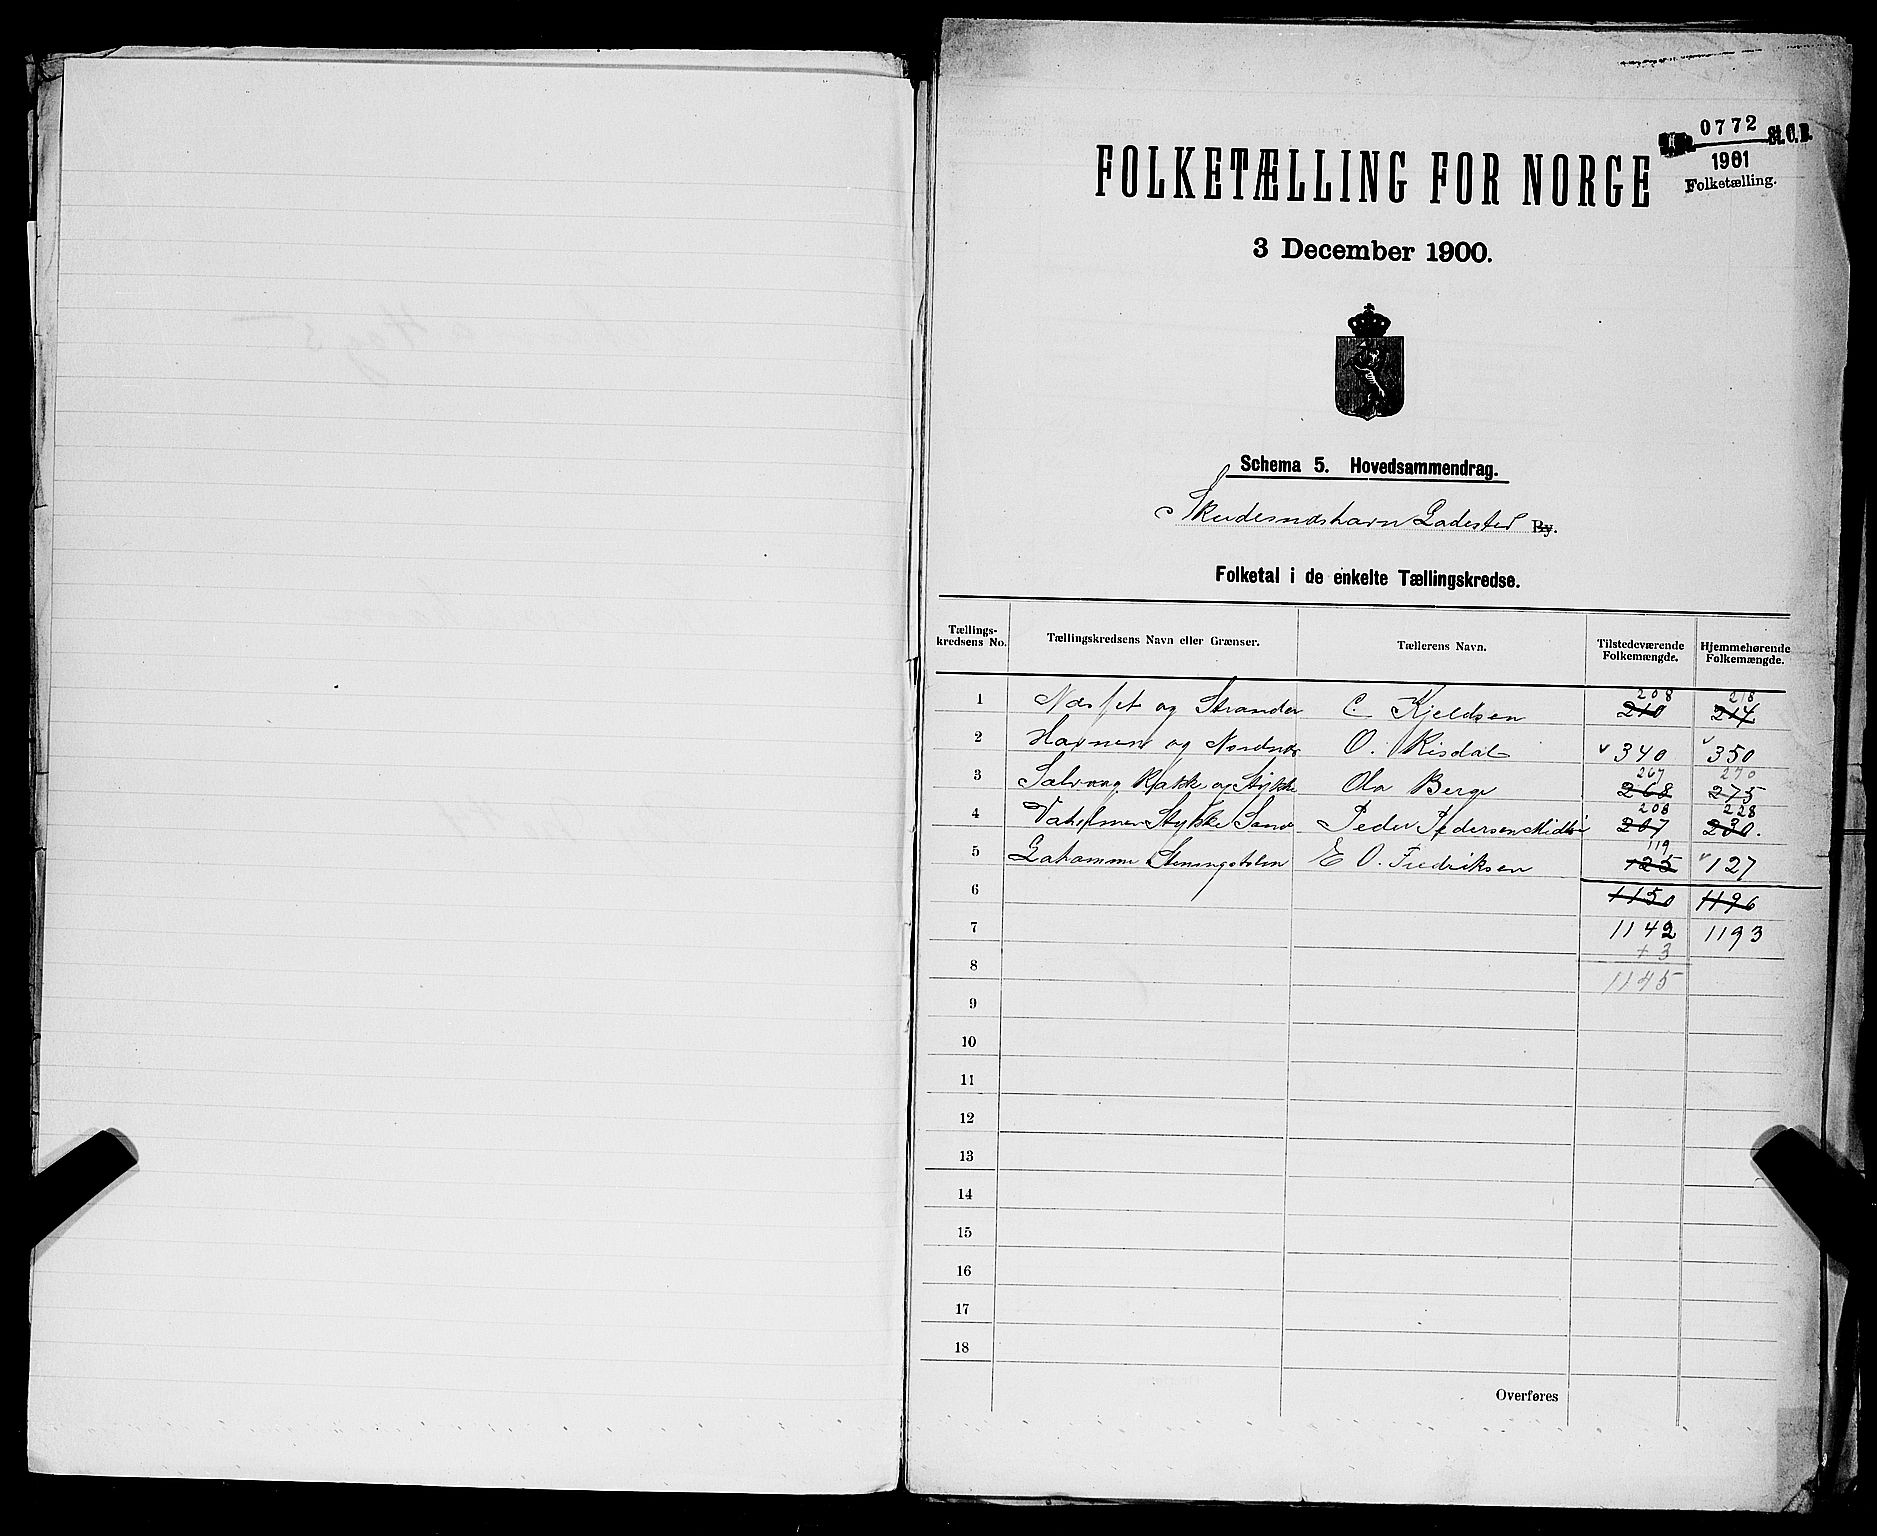 0772 St.C.B.
1901
Folketælling.
FOLKETÆLLING FOR NORGE
3 December 1900.
Schema 5. Hovedsammendrag.
Skudesneshavn Ladested By.
Folketal i de enkelte Tællingskredse.
Tællings-kredsens No. Tællingskredsens Navn eller Grænser. Tællerens Navn. Tilstedeværende Folkemængde. Hjemmehørende Folkemængde.
208 218
1 og Stranden C. Kjeldsen 210 214
2 Havnen og Nordnæs O. Risdal 340 350
267 270
3 Salvaag Rakk og Stykke Ola Berge 268 275
208 228
4 Stykke Peder Pedersen 207 230.
119
5 E O. Fredriksen 125 127
6 1150 1196
7 1142 1193
+ 3
8 1145
9
10
11
12
13
14
15
16
17
18
Overføres